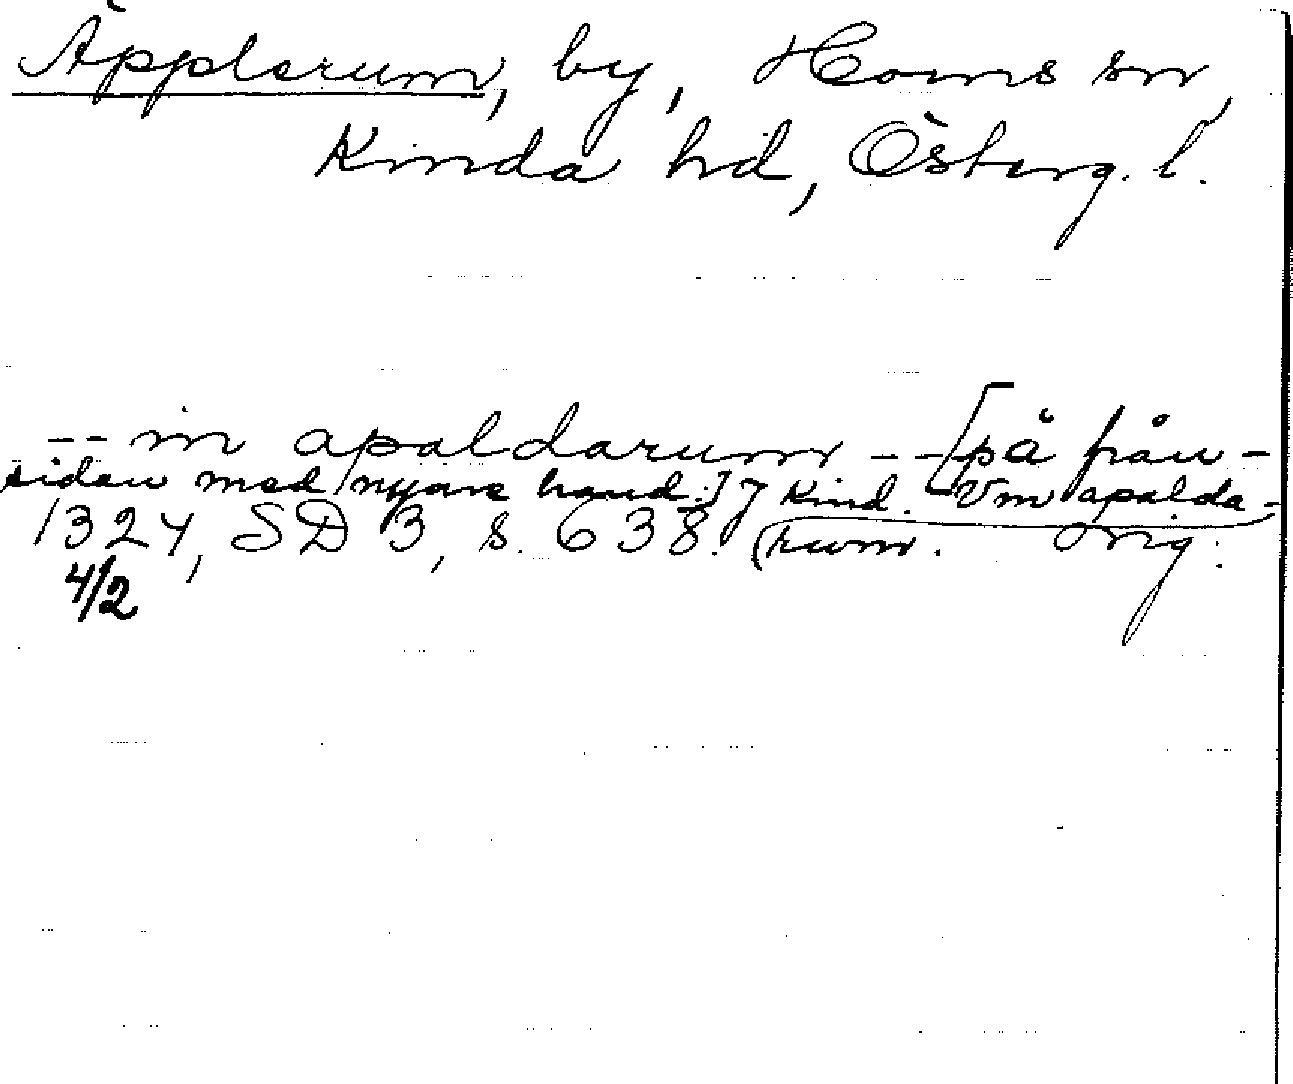 Äpplerum, by, Horns sn,
Kinda hd, Österg. l.
-- in apaldarum -- [på från-
sidan med nyare hand:] J Kind. Vm apalda-
1324, SD 3, s. 638. (rwm. Orig.
4/2